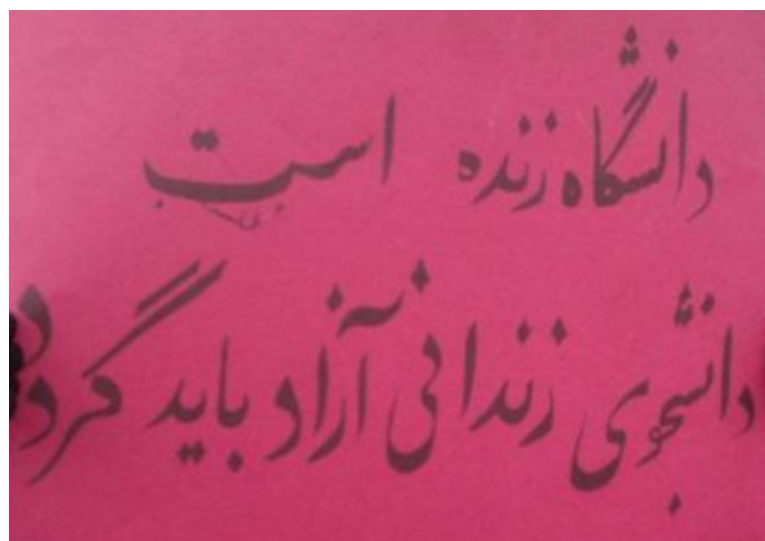 دانشگاه زنده است
دانشجوی زندانی آزاد باید گردد